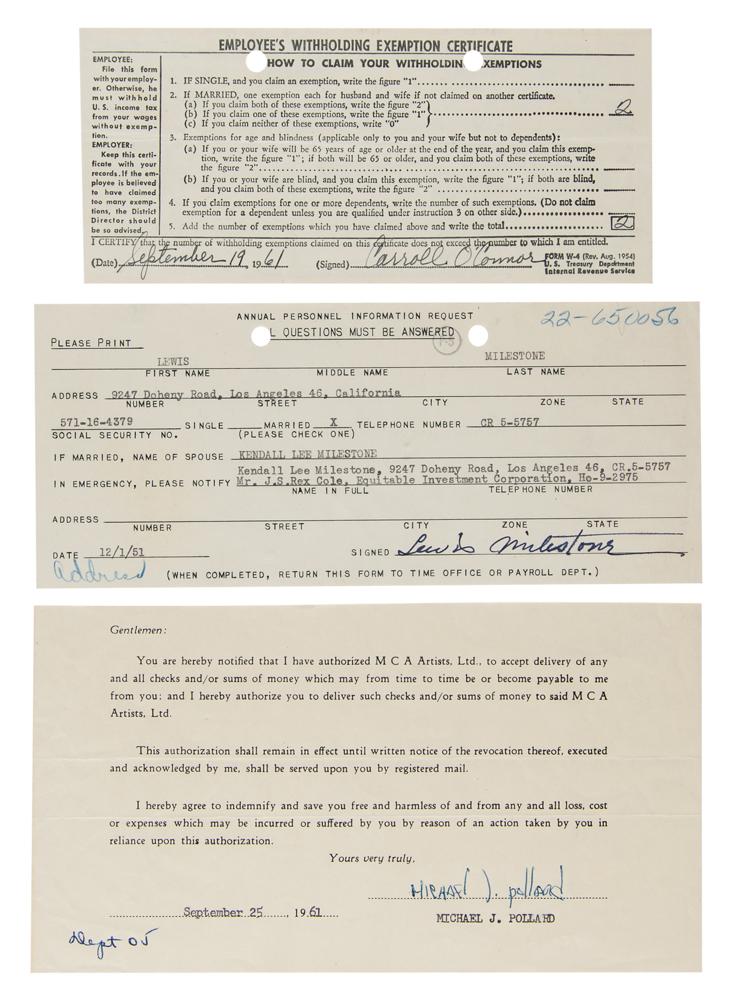 EMPLOYEE'S WITHHOLDING EXEMPTION CERTIFICATE
HOW TO CLAIM YOUR WITHHOLDIN XEMPTIONS
EMPLOYEE:
File this form
with your employ-
er. Otherwise, he
must withhold
U. S. income tax
from your wages
without exemp-
tion.
EMPLOYER:
Keep this certi-
ficate with your
records. If the em-
ployee is believed
to have claimed
too many exemp-
tions, the District
Director should
be so advised.
1. IF SINGLE, and you claim an exemption, write the figure "1"
2. If MARRIED, one exemption each for husband and wife if not claimed on another certificate.
(a) If you claim both of these exemptions, write the figure "2"
(b) If you claim one of these exemptions, write the figure "1" 2
(c) If you claim neither of these exemptions, write "0"
3. Exemptions for age and blindness (applicable only to you and your wife but not to dependents):
(a) If you or your wife will be 65 years of age or older at the end of the year, and you claim this exemp-
tion, write the figure "1"; if both will be 65 or older, and you claim both of these exemptions, write
the figure "2"
(b) If you or your wife are blind, and you claim this exemption, write the figure "1"; if both are blind,
and you claim both of these exemptions, write the figure "2"
4. If you claim exemptions for one or more dependents, write the number of such exemptions. (Do not claim
exemption for a dependent unless you are qualified under instruction 3 on other side.)
5. Add the number of exemptions which you have claimed above and write the total 2
I CERTIFY that the number of withholding exemptions claimed on this certificate does not exceed the number to which I am entitled.
(Date) September 19, 1961 (Signed) Carroll O'Connor
FORM W-4 (Rev. Aug. 1954)
U. S. Treasury Department
Internal Revenue Service
ANNUAL PERSONNEL INFORMATION REQUEST
22-650056
L QUESTIONS MUST BE ANSWERED
PLEASE PRINT
LEWIS MILESTONE
FIRST NAME MIDDLE NAME LAST NAME
ADDRESS 9247 Doheny Road, Los Angeles 46, California
NUMBER STREET CITY ZONE STATE
571-16-4379 SINGLE MARRIED X TELEPHONE NUMBER CR 5-5757
SOCIAL SECURITY NO. (PLEASE CHECK ONE)
IF MARRIED, NAME OF SPOUSE KENDALL LEE MILESTONE
Kendall Lee Milestone, 9247 Doheny Road, Los Angeles 46, CR.5-5757
IN EMERGENCY, PLEASE NOTIFY Mr. J.S.Rex Cole, Equitable Investment Corporation, Ho-9-2975
NAME IN FULL TELEPHONE NUMBER
ADDRESS
NUMBER STREET CITY ZONE STATE
DATE 12/1/51 SIGNED Lewis Milestone
Address (WHEN COMPLETED, RETURN THIS FORM TO TIME OFFICE OR PAYROLL DEPT.)
Gentlemen:
You are hereby notified that I have authorized M C A Artists, Ltd., to accept delivery of any
and all checks and/or sums of money which may from time to time be or become payable to me
from you; and I hereby authorize you to deliver such checks and/or sums of money to said M C A
Artists, Ltd.
This authorization shall remain in effect until written notice of the revocation thereof, executed
and acknowledged by me, shall be served upon you by registered mail.
I hereby agree to indemnify and save you free and harmless of and from any and all loss, cost
or expenses which may be incurred or suffered by you by reason of an action taken by you in
reliance upon this authorization.
Yours very truly,
MICHAEL J. pollard
September 25, 1961
MICHAEL J. POLLARD
Dept 05